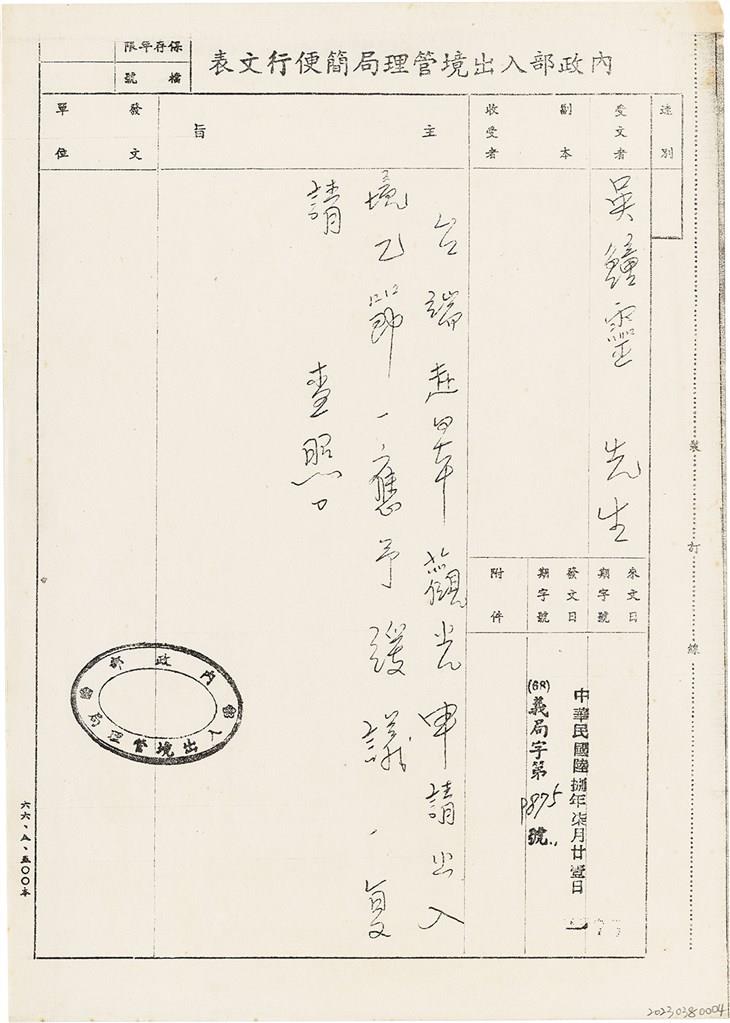 內政部入出境管理局簡便行文表
保存年限
檔號
速別
受文者
吳鐘靈 先生
副本
收受者
來文日期字號
發文日期字號
中華民國陸捌年柒月廿壹日
(68)義局字第
號
附件
主旨
台端赴日本觀光申請出入
境乙節,應予緩議,复
請
查照。
發文單位
內政部
入出境管理局
裝訂線
2023.038.0004